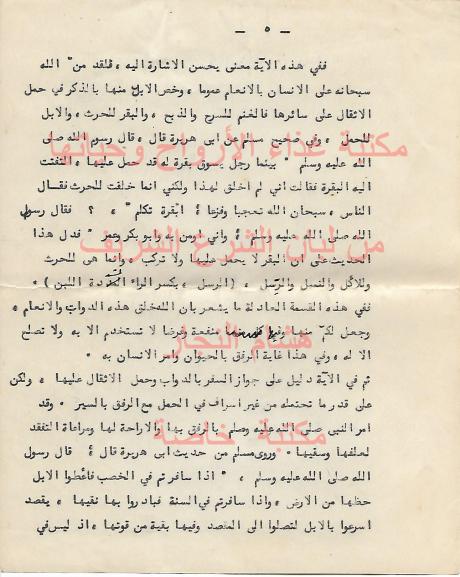 - ٥ -
ففي هذه الآية معنى يحسن الاشارة اليه ، فلقد من" الله
سبحانه على الانسان بالانعام عموما ، وخص الابل منها بالذكر في حمل
الاثقال على سائرها فالغنم للسرح والذبح ، والبقر للحرث ، والابل
للحمل ، وفي صحيح مسلم عن ابي هريرة قال ، قال رسول الله صلى
الله عليه وسلم " بينما رجل يسوق بقرة له قد حمل عليها ، التفتت
اليه البقرة فقالت اني لم اخلق لهذا ولكني انما خلقت للحرث فقال
الناس ، سبحان الله تعجبا وفزعا ، أبقرة تكلم " ، ؟ فقال رسول
الله صلى الله عليه وسلم ، واني اومن به وابو بكر وعمر " فدل هذا
الحديث على ان البقر لا يحمل عليها ولا تركب ، وانما هي للحرث
وللاكل والنسل والرسل ، ( الرسل ، بكسر الراء
اللبن ) ،
ففي هذه القسمة العادلة ما يشعر بان الله خلق هذه الدواب والانعام ،
وجعل لكم منها وفي كل منها منفعة وغرضا لا تستخدم الا به ولا تصلح
الا له ، وفي هذا غاية الرفق بالحيوان وامر الانسان به ،
ثم في الآية دليل على جواز السفر بالدواب وحمل الاثقال عليها ، ولكن
على قدر ما تحتمله من غير اسراف في الحمل مع الرفق بالسير ، وقد
امر النبي صلى الله عليه وسلم بالرفق بها والاراحة لها ومراعاة التفقد
لعلفها وسقيها ، وروى مسلم من حديث ابي هريرة قال ، قال رسول
الله صلى الله عليه وسلم ، " اذا سافرتم في الخصب فاعطوا الابل
حظها من الارض ، واذا سافرتم في السنة فبادروا بها نقيها ، يقصد
اسرعوا بالابل لتصلوا الى المقصد وفيها بقية من قوتها ، اذ ليس في
مكتبة غذاء الأرواح وحياتها
من لبان الشرع الشريف
هشام النجار
مكتبة خاصة